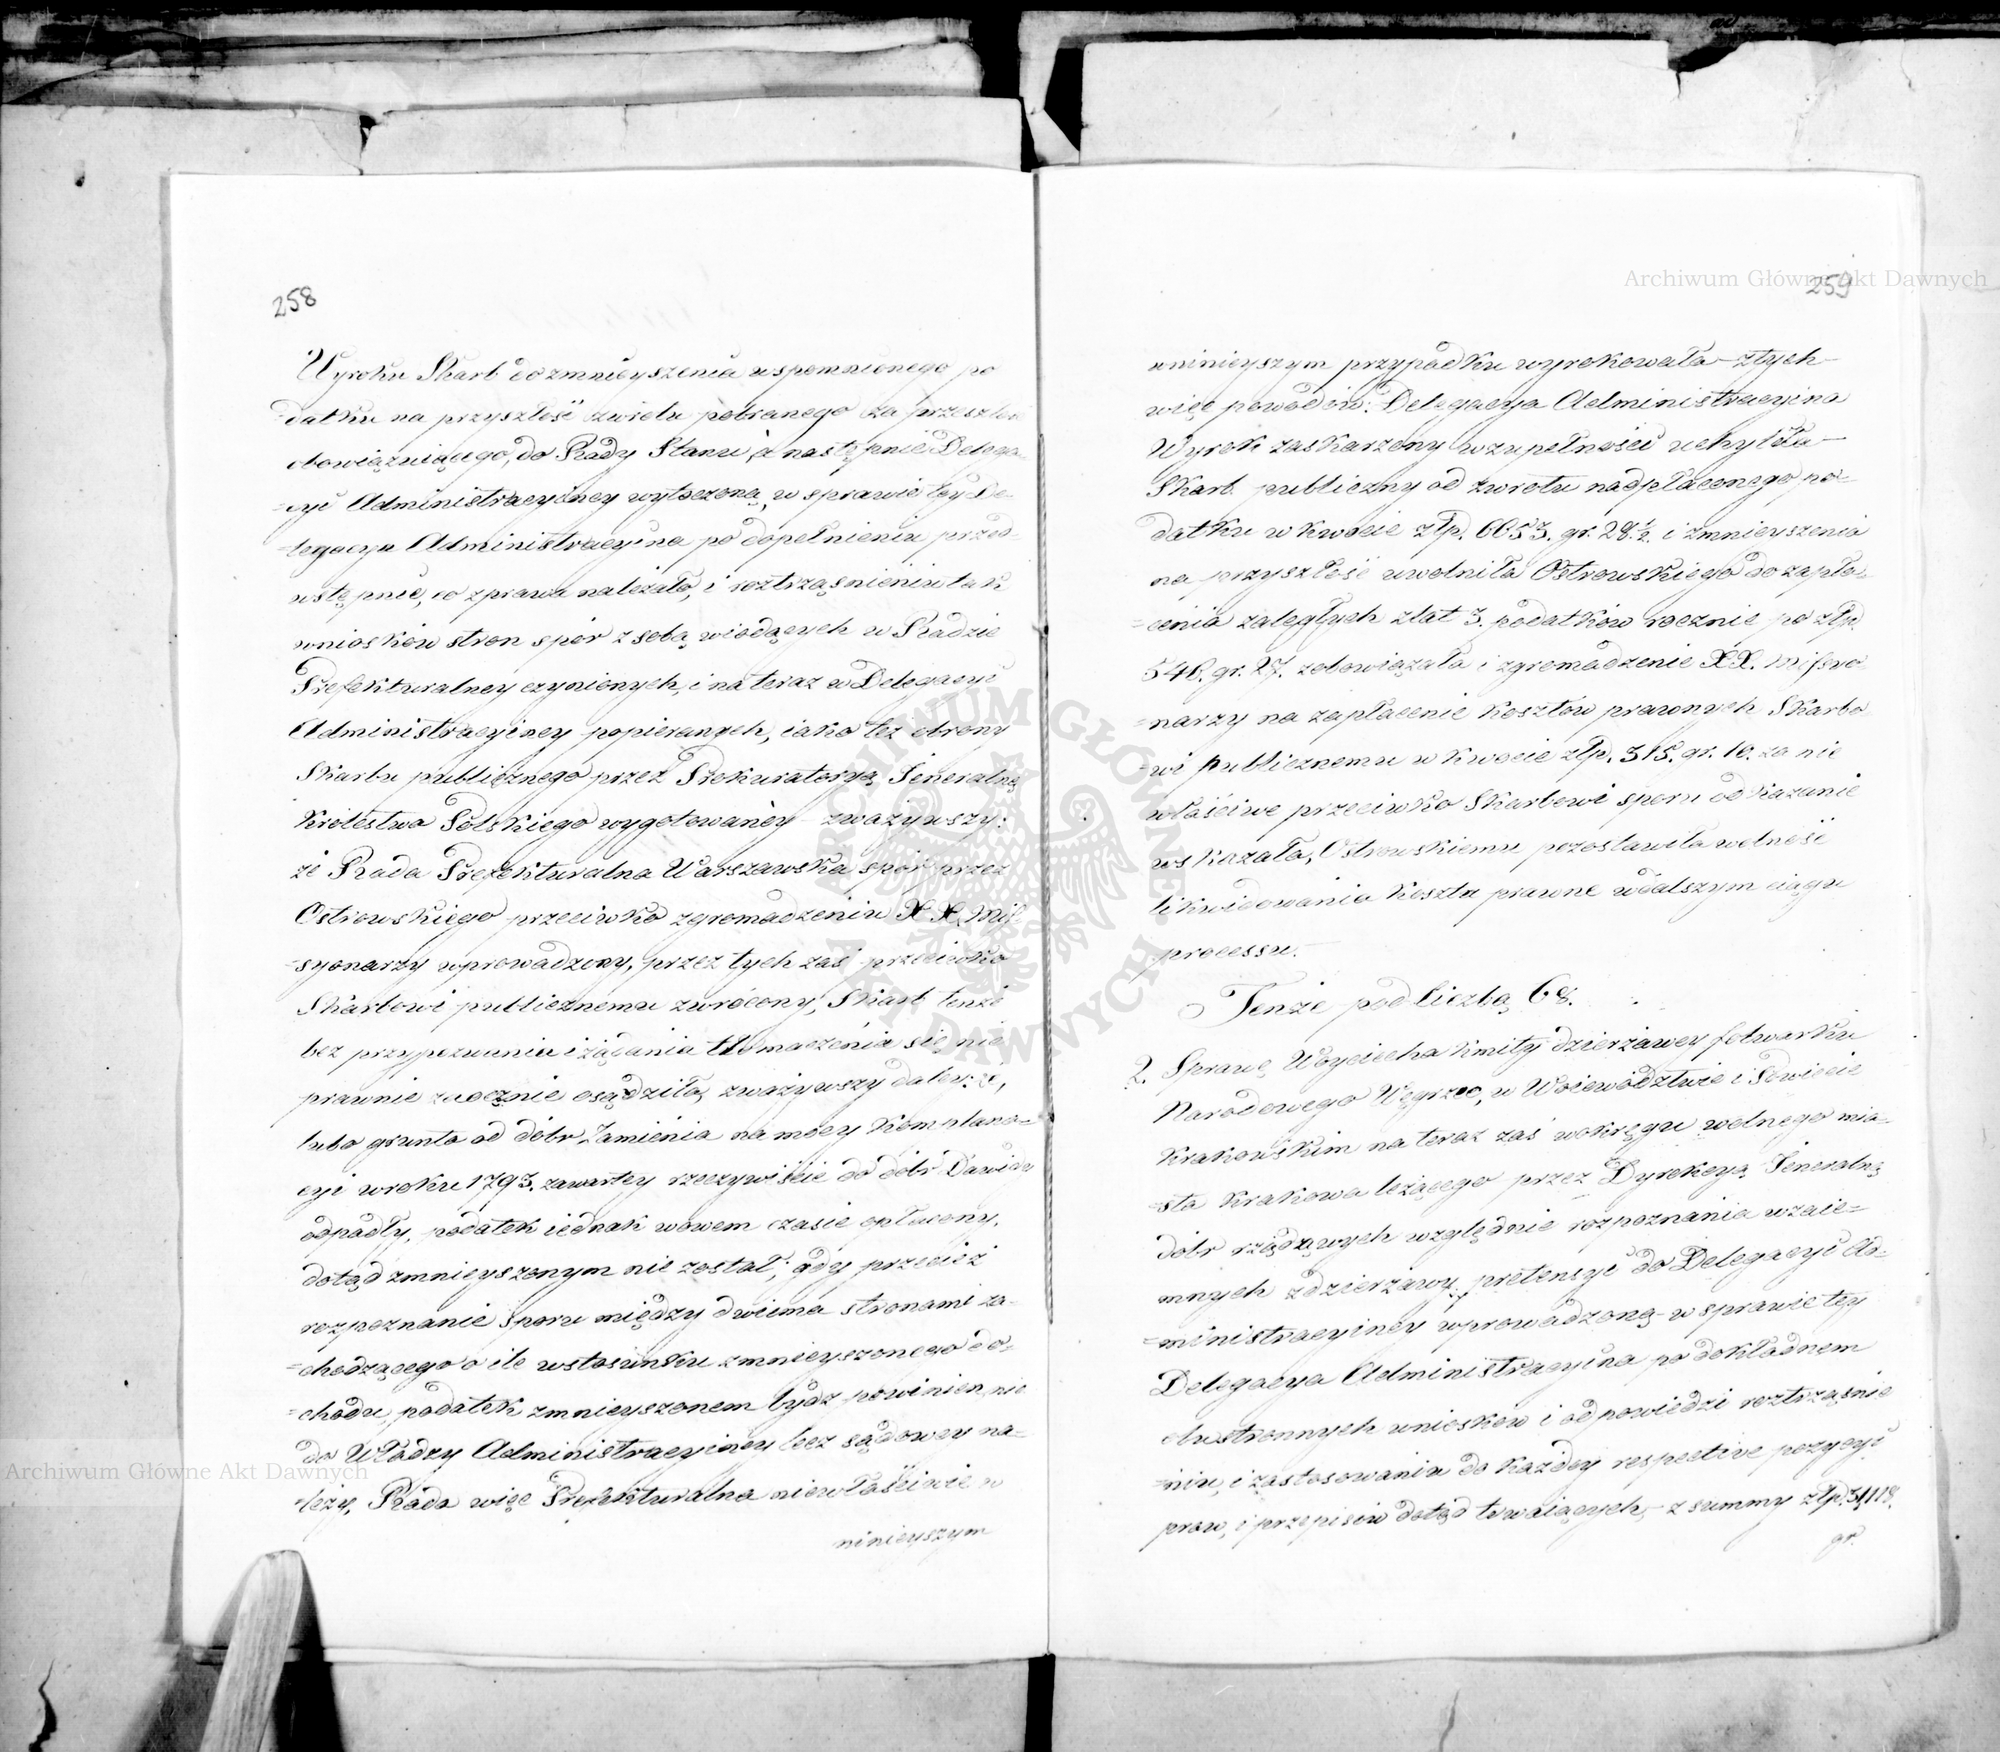 258
Wyroku Skarb do zmnieyszenia wspomnionego po
datku na przyszłość zwrotu pobranego za przeszłość
obowiązuiącego, do Rady Stanu, a następnie Delega
=cyi Administracyiney wytoczoną, w sprawie tey De=
=legacya Administracyina po dopełnieniu przed=
wstępnie, co z prawa należało, i roztrząśnieniu tak
wniosków stron spór z sobą wiodących w Radzie
Prefekturalney czynionych, i na teraz w Delegacyi
Administracyiney popieranych, iako też obrony
Skarbu publicznego przez Prokuratoryą Jeneralną
Królestwa Polskiego wygotowaney zważywszy:
że Rada Prefekturalna Warszawska spór przez
Ostrowskiego przeciwko zgromadzeniu XX. Mis=
=syonarzy wprowadzony, przez tych zaś przeciwko
Skarbowi publicznemu zwrócony, Skarb tenże
bez przypozwania i żądania tłomaczenia się nie
prawnie zaocznie osądziła, zważywszy daley: że,
lubo grunta od dóbr Zamienia na mocy Komplana=
cyi w roku 1793. zawartey rzeczywiście do dóbr Dawidy
odpadły, podatek iednak wowem czasie opłacony,
dotąd zmnieyszonym nie został; gdy przecież
rozpoznanie sporu między dwiema stronami za=
=chodzącego o ile w stosunku zmnieyszonego do=
=chodu, podatek zmnieyszonem bydź powinien, nie
do Władzy Administracyiney lecz sądowey na=
=leży, Rada więc Prefekturalna niewłaściwie w
ninieyszym
Archiwum Główne Akt Dawnych
259
w ninieyszym przypadku wyrokowała z tych
więc powodów: Delegacya Administracyina
Wyrok zaskarżony w zupełności uchyliła
Skarb publiczny od zwrotu nadpłaconego po=
datku w kwocie złp. 6653. gr. 28½. i zmnieyszenia
na przyszłość uwolniła Ostrowskiego do zapła=
=cenia zaległych z lat 3. podatków rocznie po złp.
546. gr. 27. zobowiązała i zgromadzenie XX. Missyo
=narzy na zapłacenie kosztów prawnych Skarbo
=wi publicznemu w kwocie złp. 315. gr. 10. za nie
właściwe przeciwko Skarbowi sporu odkazanie
wskazała, Ostrowskiemu pozostawiła wolność
likwidowania koszta prawne w dalszym ciągu
processu.
Tenże pod liczbą 68.
2. Sprawę Woyciecha Kmity dzierżawcy folwarku
Narodowego Węgrzec, w Woiewództwie i Powiecie
Krakowskim na teraz zaś w okręgu wolnego mia=
=sta Krakowa leżącego przez Dyrekcyą Jeneralną
dóbr rządowych względnie rozpoznania wzaie=
mnych z dzierżawy pretensyi do Delegacyi Ad=
=ministracyiney wprowadzoną w sprawie tey
Delegacya Administracyina po dokładnem
obustronnych wniosków i odpowiedzi roztrząśnie
=niu, i zastosowaniu do każdey respective pozycyi
praw, i przepisów dotąd trwaiących, z summy złp. 31,118.
gr.
Archiwum Główne Akt Dawnych
ARCHIWUM GŁÓWNE AKT DAWNYCH